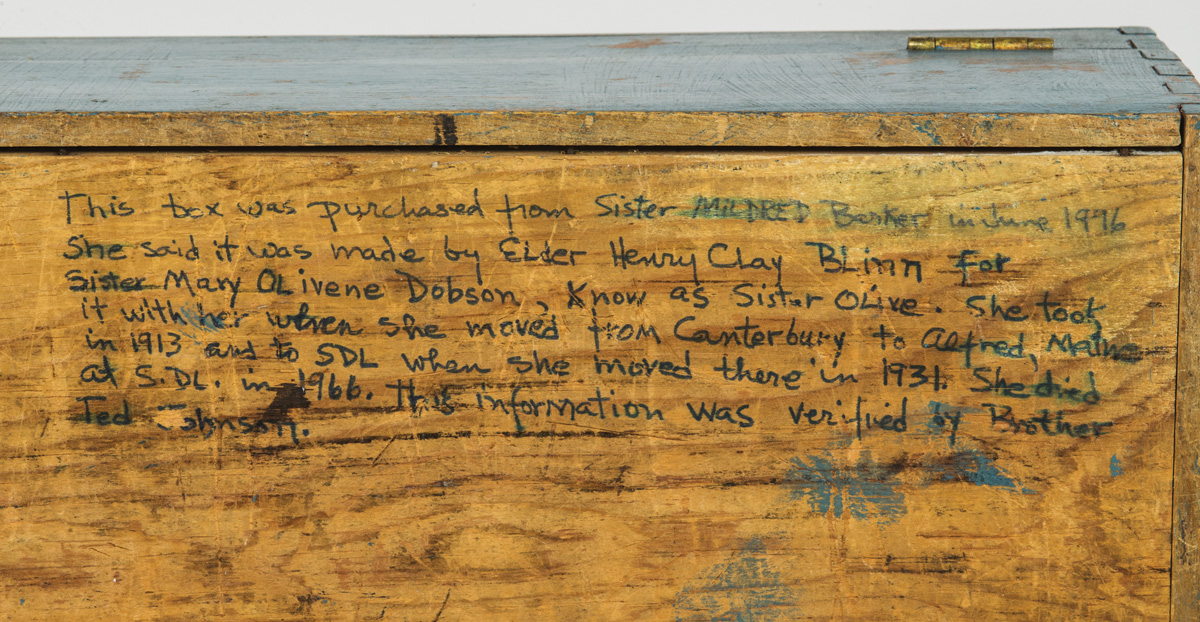 This box was purchased from Sister MILDRED Barker in June 1976
She said it was made by Elder Henry Clay BLinn For
Sister Mary OLivene Dobson, Know as Sister Olive. She took
it with her when she moved from Canterbury to Alfred, Maine
in 1913 and to SDL when she moved there in 1931. She died
at S.DL. in 1966. This information was verified by Brother
Ted Johnson.